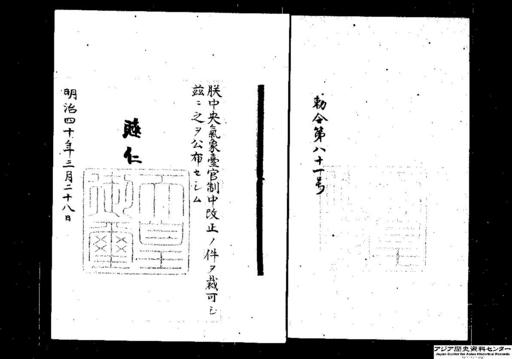 勅令第八十一号
朕中央氣象臺官制中改正ノ件ヲ裁可シ
玆ニ之ヲ公布セシム
睦仁
天皇
御璽
明治四十年三月二十八日
アジア歴史資料センター
Japan Center for Asian Historical Records